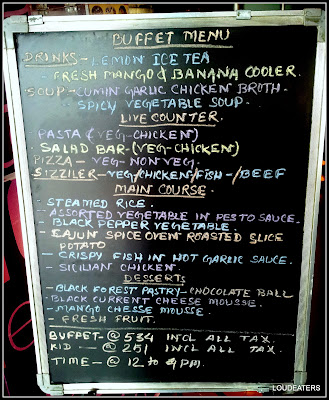 BUFFET MENU
DRINKS - LEMON ICE TEA
- FRESH MANGO & BANANA COOLER.
SOUP - CUMIN GARLIC CHICKEN BROTH
- SPICY VEGETABLE SOUP.
LIVE COUNTER
PASTA (VEG-CHICKEN)
SALAD BAR-(VEG-CHICKEN)
PIZZA - VEG-NON VEG.
SIZZILER-VEG/CHICKEN/FISH-/BEEF
MAIN COURSE
- STEAMED RICE.
- ASSORTED VEGETABLE IN PESTO SAUCE.
- BLACK PEPPER VEGETABLE.
- CAJUN SPICE OVEN ROASTED SLICE
POTATO
- CRISPY FISH IN HOT GARLIC SAUCE.
- SICILIAN CHICKEN.
DESSERTS
- BLACK FOREST PASTRY - CHOCOLATE BALL
- BLACK CURRENT CHEESE MOUSSE.
- MANGO CHESSE MOUSSE.
- FRESH FRUIT.
BUFFET-@ 534 INCL ALL TAX.
KID -- @ 251 INCL ALL TAX.
TIME - @ 12 to 4 PM.
LOUDEATERS